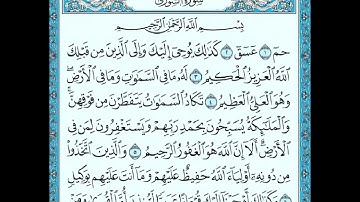 سورة الشورى
بِسْمِ اللَّهِ الرَّحْمَٰنِ الرَّحِيمِ
حمٓ ۝١ عٓسٓقٓ ۝٢ كَذَٰلِكَ يُوحِىٓ إِلَيْكَ وَإِلَى ٱلَّذِينَ مِن قَبْلِكَ
ٱللَّهُ ٱلْعَزِيزُ ٱلْحَكِيمُ ۝٣ لَهُۥ مَا فِى ٱلسَّمَٰوَٰتِ وَمَا فِى ٱلْأَرْضِ
وَهُوَ ٱلْعَلِىُّ ٱلْعَظِيمُ ۝٤ تَكَادُ ٱلسَّمَٰوَٰتُ يَتَفَطَّرْنَ مِن فَوْقِهِنَّ
وَٱلْمَلَٰٓئِكَةُ يُسَبِّحُونَ بِحَمْدِ رَبِّهِمْ وَيَسْتَغْفِرُونَ لِمَن فِى
ٱلْأَرْضِ أَلَآ إِنَّ ٱللَّهَ هُوَ ٱلْغَفُورُ ٱلرَّحِيمُ ۝٥ وَٱلَّذِينَ ٱتَّخَذُوا۟
مِن دُونِهِۦٓ أَوْلِيَآءَ ٱللَّهُ حَفِيظٌ عَلَيْهِمْ وَمَآ أَنتَ عَلَيْهِم بِوَكِيلٍ